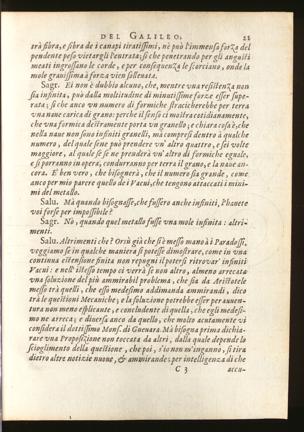 DEL GALILEO. 21
trà fibra, e fibra de i canapi tiratissimi, nè può l'immensa forza del
pendente peso vietargli l'entrata; sì che penetrando per gli angusti
meati ingrossano le corde, e per consequenza le scorciano, onde la
mole gravissima à forza vien sollevata.
Sagr. Ei non è dubbio alcuno, che, mentre vna resistenza non
sia infinita, può dalla moltitudine di minutissime forze esser supe-
rata; sì che anco vn numero di formiche stracicherebbe per terra
vna naue carica di grano: perche il senso ci mostra cotidianamente,
che vna formica destramente porta vn granello; e chiara cosa è, che
nella naue non sono infiniti granelli, mà compresi dentro à qualche
numero, del quale se ne può prendere vn'altro quattro, e sei volte
maggiore, al quale se se ne prenderà vn'altro di formiche eguale,
e si porranno in opera, condurranno per terra il grano, e la naue an-
cora. E ben vero, che bisognerà, che il numero sia grande, come
anco per mio parere quello de i Vacui, che tengono attaccati i mini-
mi del metallo.
Salu. Mà quando bisognasse, che fussero anche infiniti, l'hauete
voi forse per impossibile?
Sagr. Nò, quando quel metallo fusse vna mole infinita: altri-
menti.
Salu. Altrimenti che? Orsù già che si è messo mano à i Paradossi,
veggiamo se in qualche maniera si potesse dimostrare, come in vna
continua estensione finita non repugni il potersi ritrouar' infiniti
Vacui: e nell' istesso tempo ci verrà se non altro, almeno arrecata
vna soluzione del più ammirabil problema, che sia da Aristotele
messo trà quelli, che esso medesimo addimanda ammirandi, dico
trà le questioni Mecaniche; e la soluzione potrebbe esser per auuen-
tura non meno esplicante, e concludente di quella, che egli medesi-
mo ne arreca; e diuersa anco da quello, che molto acutamente vi
considera il dottissimo Mons. di Gueuara. Mà bisogna prima dichia-
rare vna Proposizione non toccata da altri, dalla quale depende lo
scioglimento della questione, che poi, s'io non m'inganno, si tira
dietro altre notizie nuoue, & ammirande; per intelligenza di che
C 3 accu-